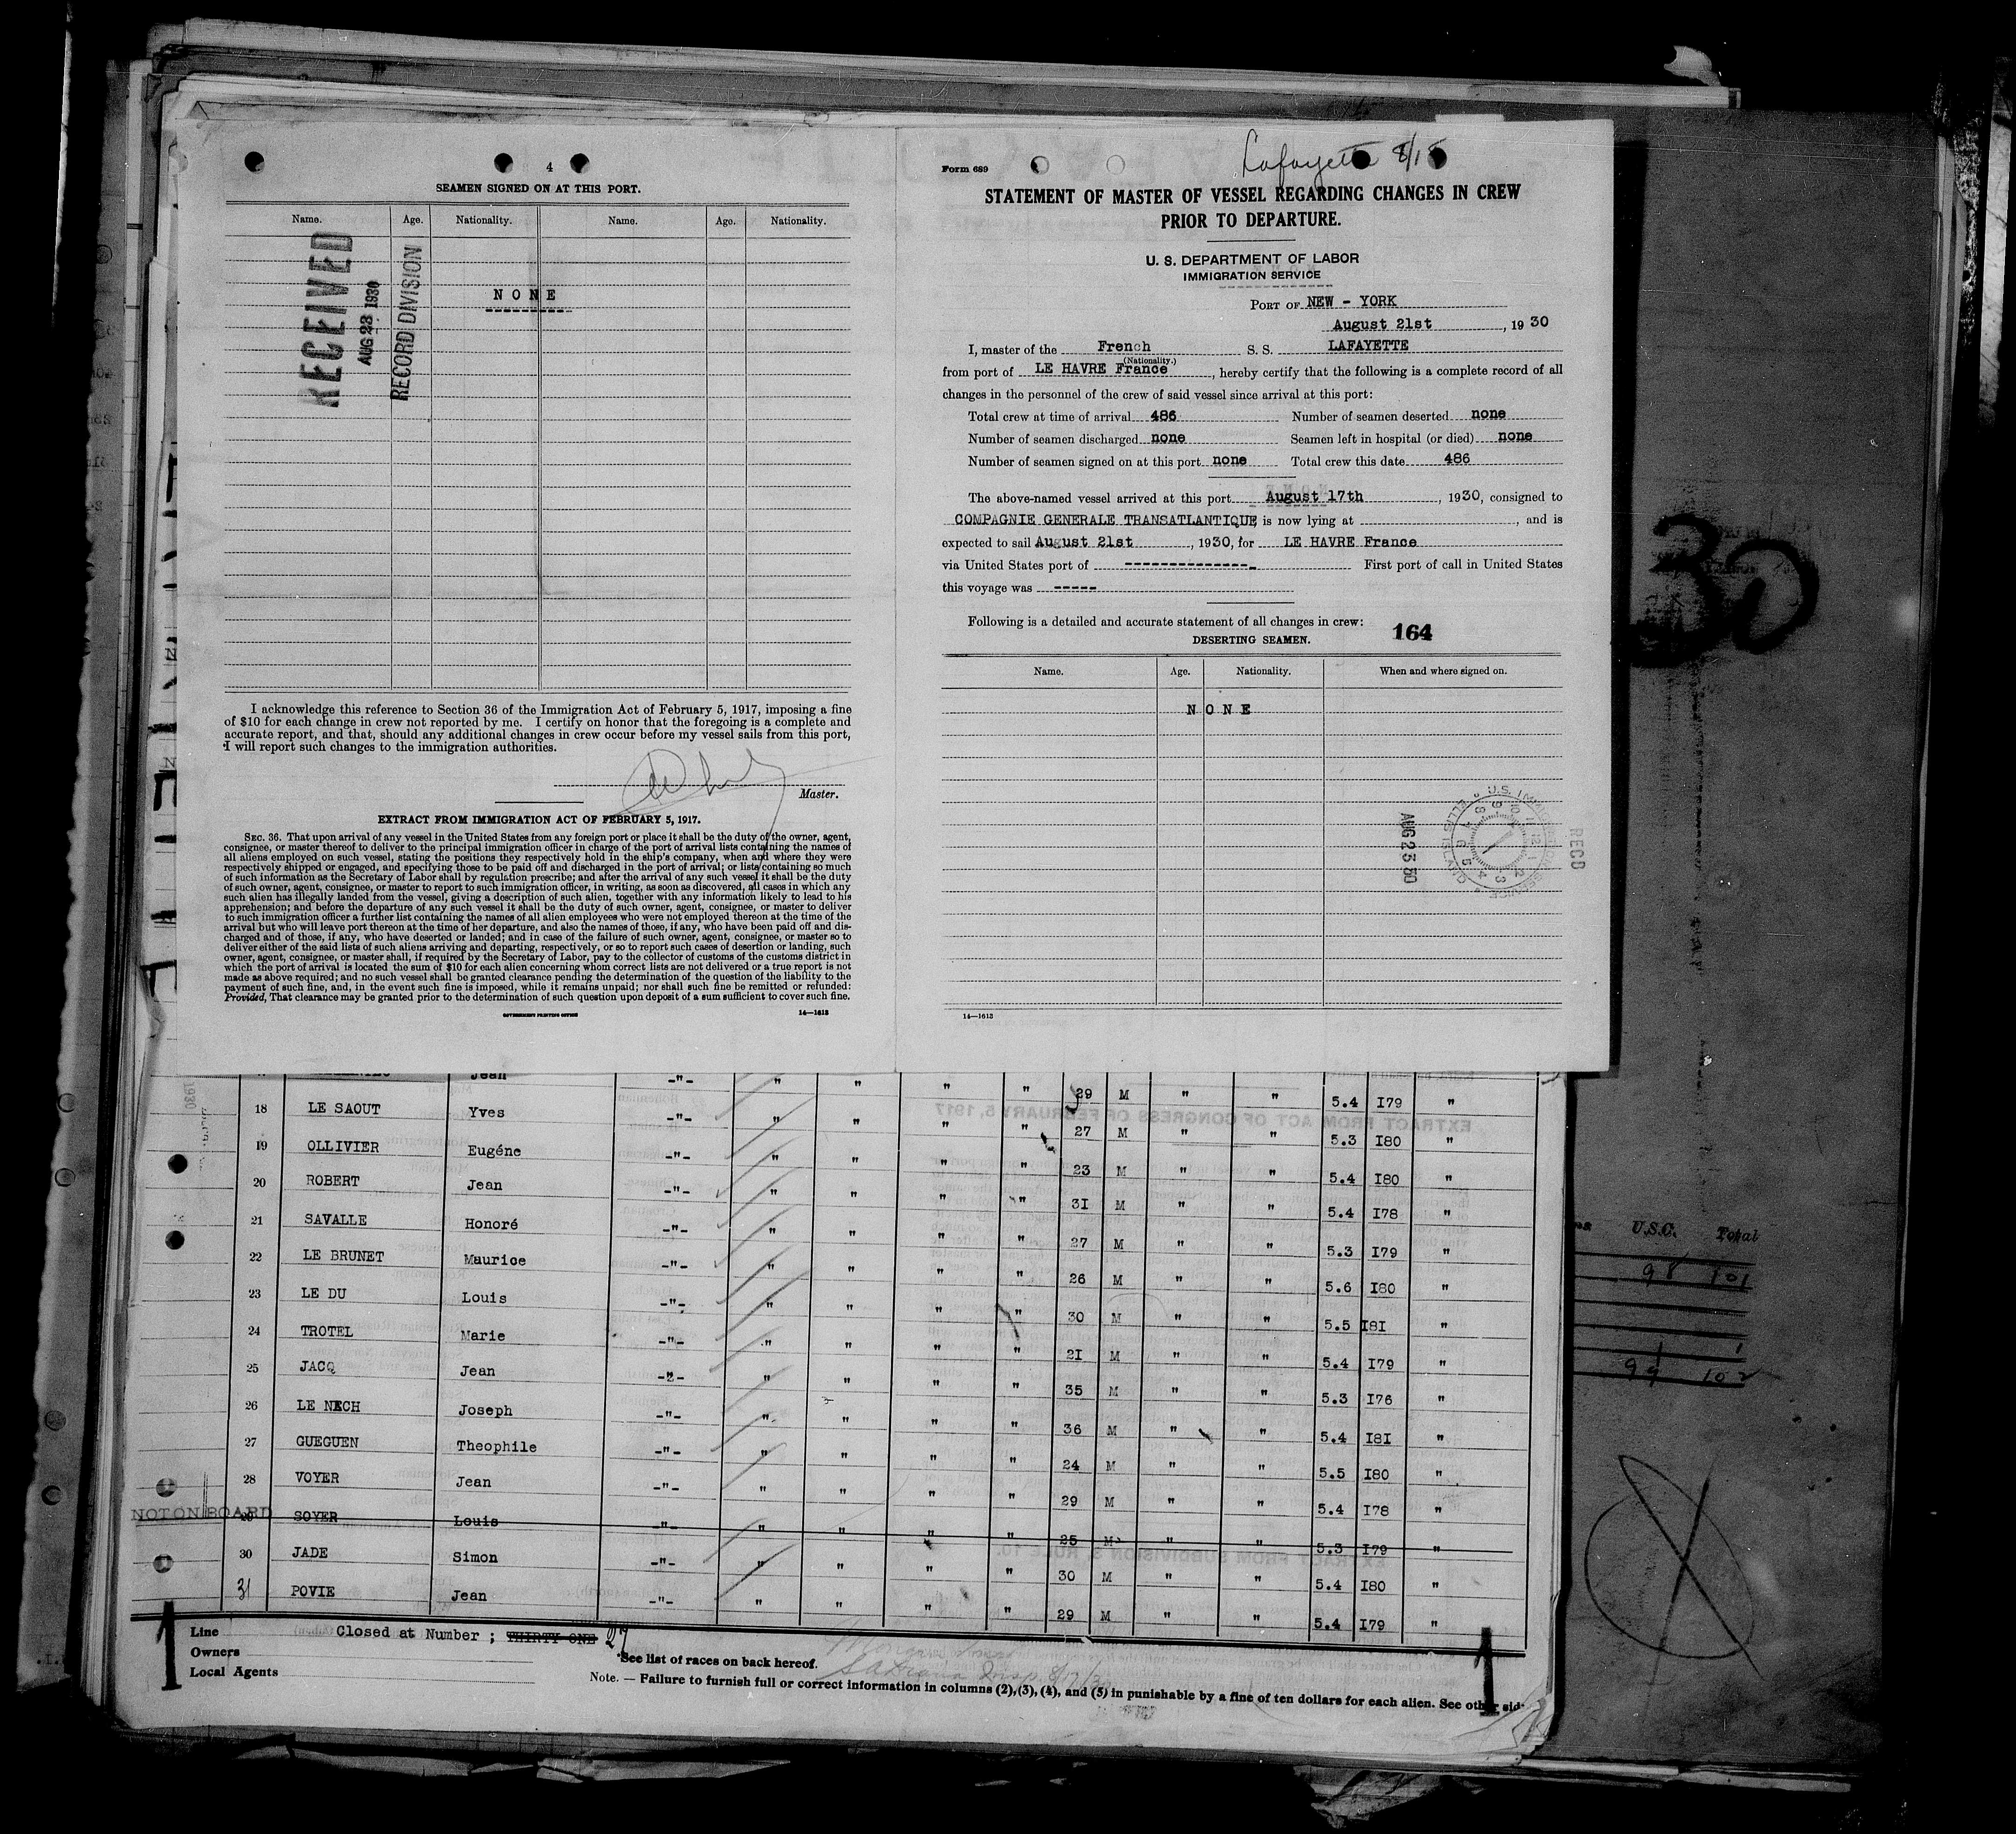 4
SEAMEN SIGNED ON AT THIS PORT.
Name. Age. Nationality. Name. Age. Nationality.
NONE
RECEIVED
AUG 23 1930
RECORD DIVISION
I acknowledge this reference to Section 36 of the Immigration Act of February 5, 1917, imposing a fine
of $10 for each change in crew not reported by me. I certify on honor that the foregoing is a complete and
accurate report, and that, should any additional changes in crew occur before my vessel sails from this port,
I will report such changes to the immigration authorities.
Master.
EXTRACT FROM IMMIGRATION ACT OF FEBRUARY 5, 1917.
SEC. 36. That upon arrival of any vessel in the United States from any foreign port or place it shall be the duty of the owner, agent,
consignee, or master thereof to deliver to the principal immigration officer in charge of the port of arrival lists containing the names of
all aliens employed on such vessel, stating the positions they respectively hold in the ship's company, when and where they were
respectively shipped or engaged, and specifying those to be paid off and discharged in the port of arrival; or lists containing so much
of such information as the Secretary of Labor shall by regulation prescribe; and after the arrival of any such vessel it shall be the duty
of such owner, agent, consignee, or master to report to such immigration officer, in writing, as soon as discovered, all cases in which any
such alien has illegally landed from the vessel, giving a description of such alien, together with any information likely to lead to his
apprehension; and before the departure of any such vessel it shall be the duty of such owner, agent, consignee, or master to deliver
to such immigration officer a further list containing the names of all alien employees who were not employed thereon at the time of the
arrival but who will leave port thereon at the time of her departure, and also the names of those, if any, who have been paid off and dis-
charged and of those, if any, who have deserted or landed; and in case of the failure of such owner, agent, consignee, or master so to
deliver either of the said lists of such aliens arriving and departing, respectively, or so to report such cases of desertion or landing, such
owner, agent, consignee, or master shall, if required by the Secretary of Labor, pay to the collector of customs of the customs district in
which the port of arrival is located the sum of $10 for each alien concerning whom correct lists are not delivered or a true report is not
made as above required; and no such vessel shall be granted clearance pending the determination of the question of the liability to the
payment of such fine, and, in the event such fine is imposed, while it remains unpaid; nor shall such fine be remitted or refunded:
Provided, That clearance may be granted prior to the determination of such question upon deposit of a sum sufficient to cover such fine.
GOVERNMENT PRINTING OFFICE 14—1613
Form 689
Lafayette 8/18
STATEMENT OF MASTER OF VESSEL REGARDING CHANGES IN CREW
PRIOR TO DEPARTURE.
U. S. DEPARTMENT OF LABOR
IMMIGRATION SERVICE
PORT OF NEW - YORK
August 21st, 1930
I, master of the French S. S. LAFAYETTE
(Nationality.)
from port of LE HAVRE France, hereby certify that the following is a complete record of all
changes in the personnel of the crew of said vessel since arrival at this port:
Total crew at time of arrival 486 Number of seamen deserted none
Number of seamen discharged none Seamen left in hospital (or died) none
Number of seamen signed on at this port none Total crew this date 486
The above-named vessel arrived at this port August 17th, 1930, consigned to
COMPAGNIE GENERALE TRANSATLANTIQUE, is now lying at , and is
expected to sail August 21st, 1930, for LE HAVRE France
via United States port of -------------- First port of call in United States
this voyage was -----
Following is a detailed and accurate statement of all changes in crew:
164
DESERTING SEAMEN.
Name. Age. Nationality. When and where signed on.
NONE
AUG 23 30
RECD
14—1613
30
Jean -"- " " " " 29 M " " 5.4 I79 "
18 LE SAOUT Yves -"- " " " " 27 M " " 5.3 I80 "
19 OLLIVIER Eugéne -"- " " " " 23 M " " 5.4 I80 "
20 ROBERT Jean -"- " " " " 31 M " " 5.4 I78 "
21 SAVALLE Honoré -"- " " " " 27 M " " 5.3 I79 "
22 LE BRUNET Maurice -"- " " " " 26 M " " 5.6 I80 "
23 LE DU Louis -"- " " " " 30 M " " 5.5 I81 "
24 TROTEL Marie -"- " " " " 21 M " " 5.4 I79 "
25 JACQ Jean -"- " " " " 35 M " " 5.3 I76 "
26 LE NECH Joseph -"- " " " " 36 M " " 5.4 I81 "
27 GUEGUEN Theophile -"- " " " " 24 M " " 5.5 I80 "
28 VOYER Jean -"- " " " " 29 M " " 5.4 I78 "
NOT ON BOARD 29 SOYER Louis -"- " " " " 25 M " " 5.3 I79 "
30 JADE Simon -"- " " " " 30 M " " 5.4 I80 "
31 POVIE Jean -"- " " " " 29 M " " 5.4 I79 "
Line Closed at Number ; THIRTY ONE 27
Owners
Local Agents
See list of races on back hereof.
Note. — Failure to furnish full or correct information in columns (2),(3), (4), and (5) in punishable by a fine of ten dollars for each alien. See other side
U.S.C. Total
98 101
1 1
99 102